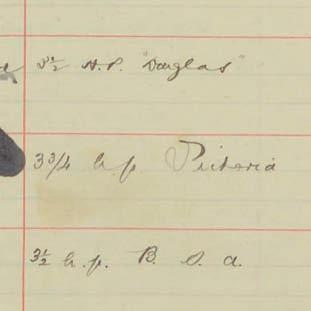 3½ H.P. "Douglas"
3¾ h.p Victoria
3½ h.p. B. S. A.